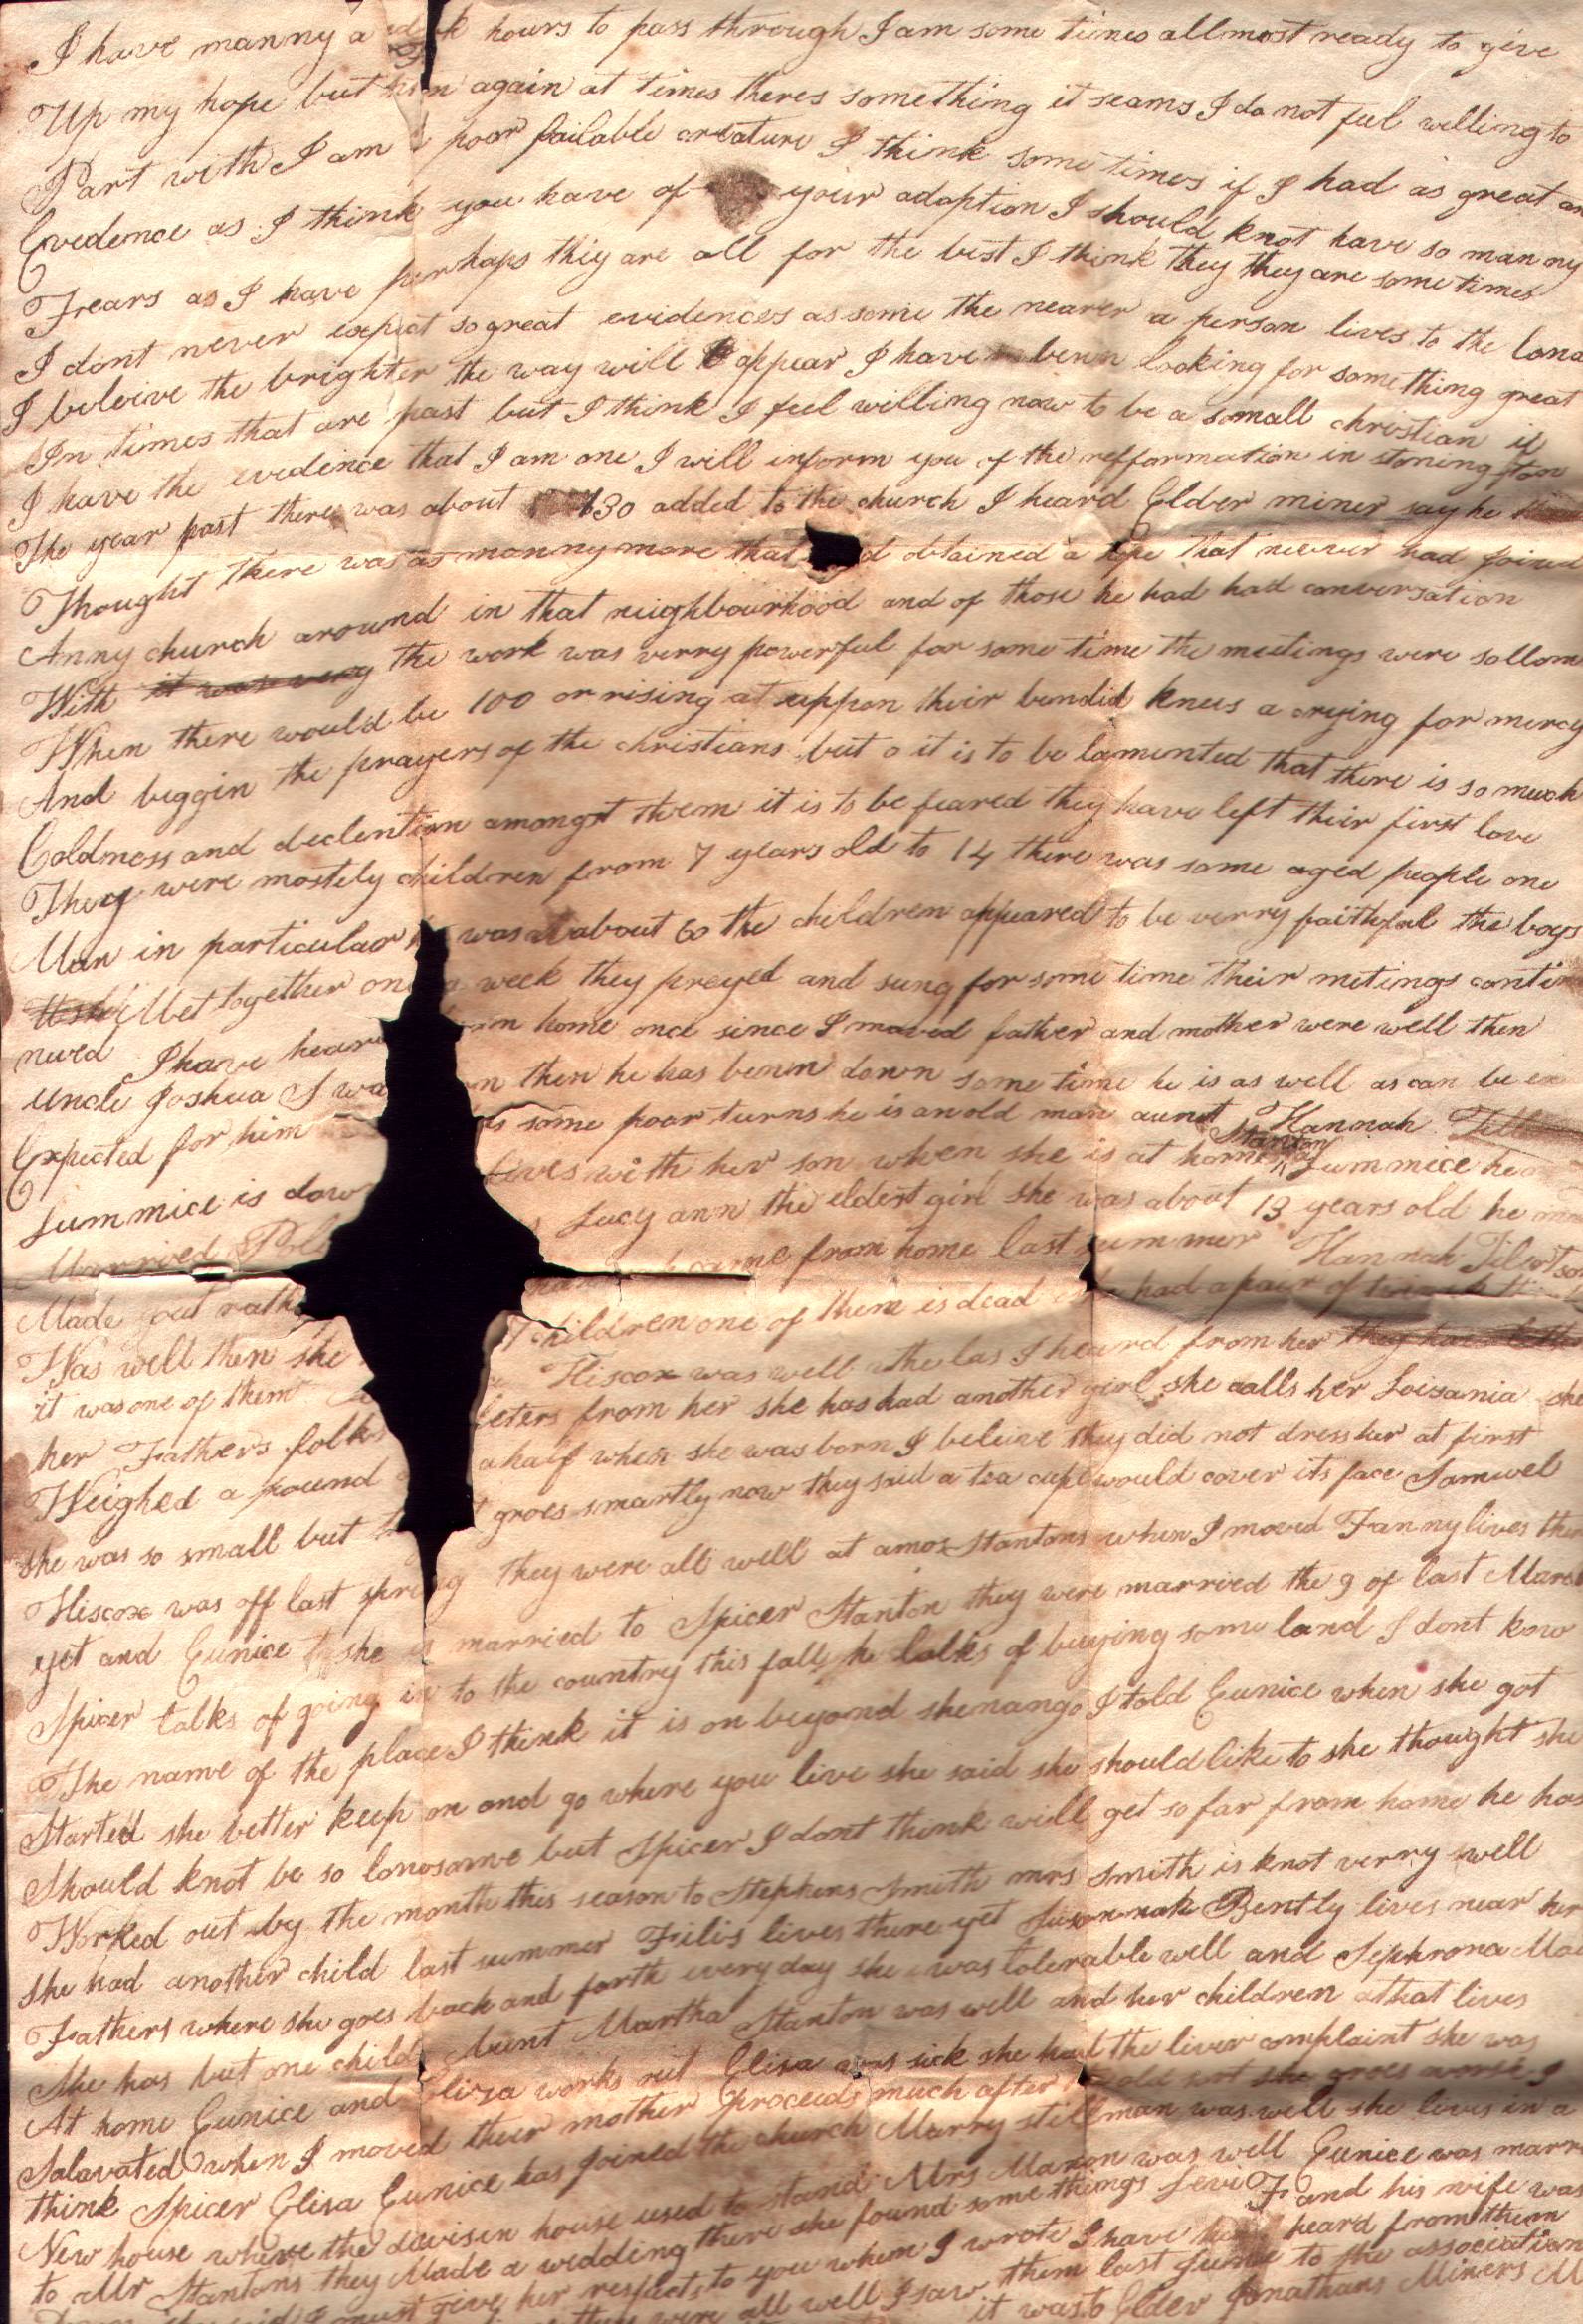 I have manny a hours to pass through I am some times allmost ready to give
Up my hope but again at times theres something it seams I do not feel willing to
Part with I am poor failable creature I think some times if I had as great an
Evedence as I think you have of your adoption I should knot have so manny
Frears as I have perhaps thiy are all for the best I think they they are some times
I dont never expect so great evidences as some the nearer a person lives to the
I beleive the brighter the way will appear I have benn looking for something great
In times that are past but I think I feel willing now to be a small christian if
I have the evedince that I am one I will inform you of the refformation in stonington
The year past there was about 130 added to the church I heard Elder miner say he
Thought there was as manny more that obtained a hope that never had joined
Anny church around in that neighbourhood and of those he had had conversation
With it was very the work was verry powerful for some time the meetings were sollom
When there would be 100 or rising at uppon their bendid knees a crying for mercy
And beggin the prayers of the christians but o it is to be lamented that there is so much
Coldness and declention amongst them it is to be feared they have left their first love
They were mostely children from 7 years old to 14 there was some aged people one
Man in particular was about 60 the children appeared to be verry faithful the boys
Met together week they preyed and sung for some time their metings conti
nued I have home once since I moved father and mother were well then
uncle Joshua S then he has benn down some time he is as well as can be
Expected for him some poor turns he is an old man aunt Hannah
Stanton
Lummice is lives with her son when she is at home Lummice
Married Lucy ann the eldest girl she was about 13 years old he
Made out came from home last summer Hannah
Was well then she 7 children one of them is dead had a pair of
it was one of them Hiscox was well the las I heard from her
her Fathers folks leters from her she has had another girl she calls her Loisania she
Weighed a pound a half when she was born I beleive they did not dress her at first
she was so small but groes smartly now they said a tea cup would cover its face Samuel
Hiscox was off last spring they were all well at amos Stantons when I moved Fanny lives
yet and Eunice she is married to Spicer Stanton they were married the 9 of last March
Spicer talks of going in to the country this fall he talks of buying some land I dont know
The name of the place I think it is on beyond shenango I told Eunice when she got
Started she better keep on and go where you live she said she should like to she thought she
Should knot be so lonosome but Spicer I dont think will get so far from home he has
Worked out by the month this season to Stephens Smith mrs Smith is knot verry well
she had another child last summer Filis lives there yet Bently lives near her
Fathers where she goes back and forth every day she was tolerable well and Sephrona
She has but one child Aunt Martha Stanton was well and her children that lives
At home Eunice and Eliza works out Elisa was sick she had the liver complaint she was
Salavated when I moved their mother proceeds much after she groes worse I
think Spicer Elisa Eunice has joined the church Marry stillman was well she lives in a
New house where the davisen house used to stand Mrs Maxon was well Eunice was
to Mr Stantons they Made a wedding there she found some things Levi F and his wife was
I must give her respects to you when I wrote I have heard from them
they were all well I saw them last June to the association
it was to Elder Jonathans Miners